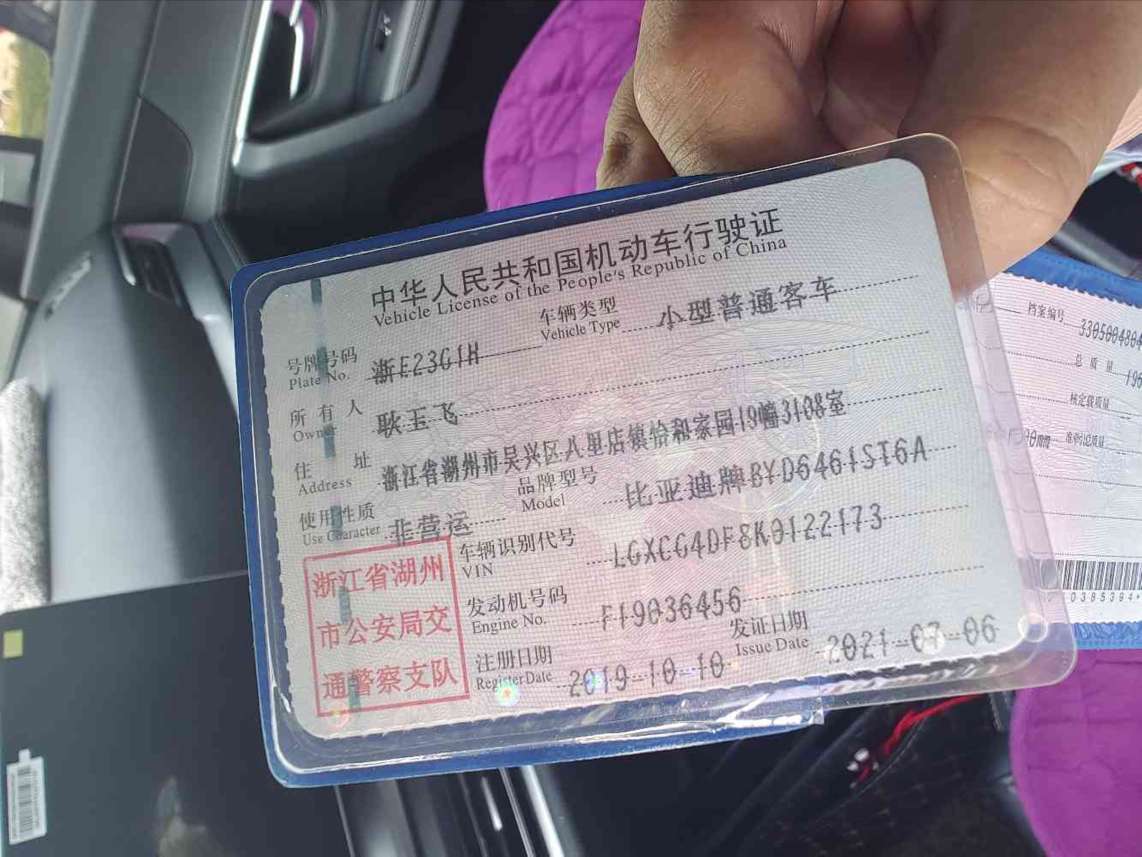 中华人民共和国机动车行驶证
Vehicle License of the People's Republic of China
号牌号码 浙E23G1H 车辆类型 小型普通客车
Plate No. Vehicle Type
所有人 耿玉飞
Owner
住址 浙江省湖州市吴兴区八里店镇恰和家园19幢3108室
Address
使用性质 非营运 品牌型号 比亚迪牌BYD6461ST6A
Use Character Model
浙江省湖州
市公安局交
通警察支队
车辆识别代号 LGXCG4DF8K0122173
VIN
发动机号码 F19036456
Engine No.
注册日期 2019-10-10 发证日期 2021-07-06
Register Date Issue Date
档案编号 3305004804
总质量
核定载质量
准牵引总质量
mm
0385394*